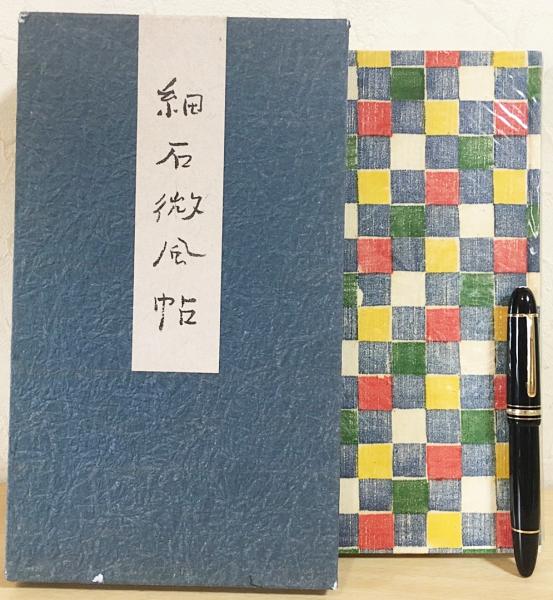 細石微風帖